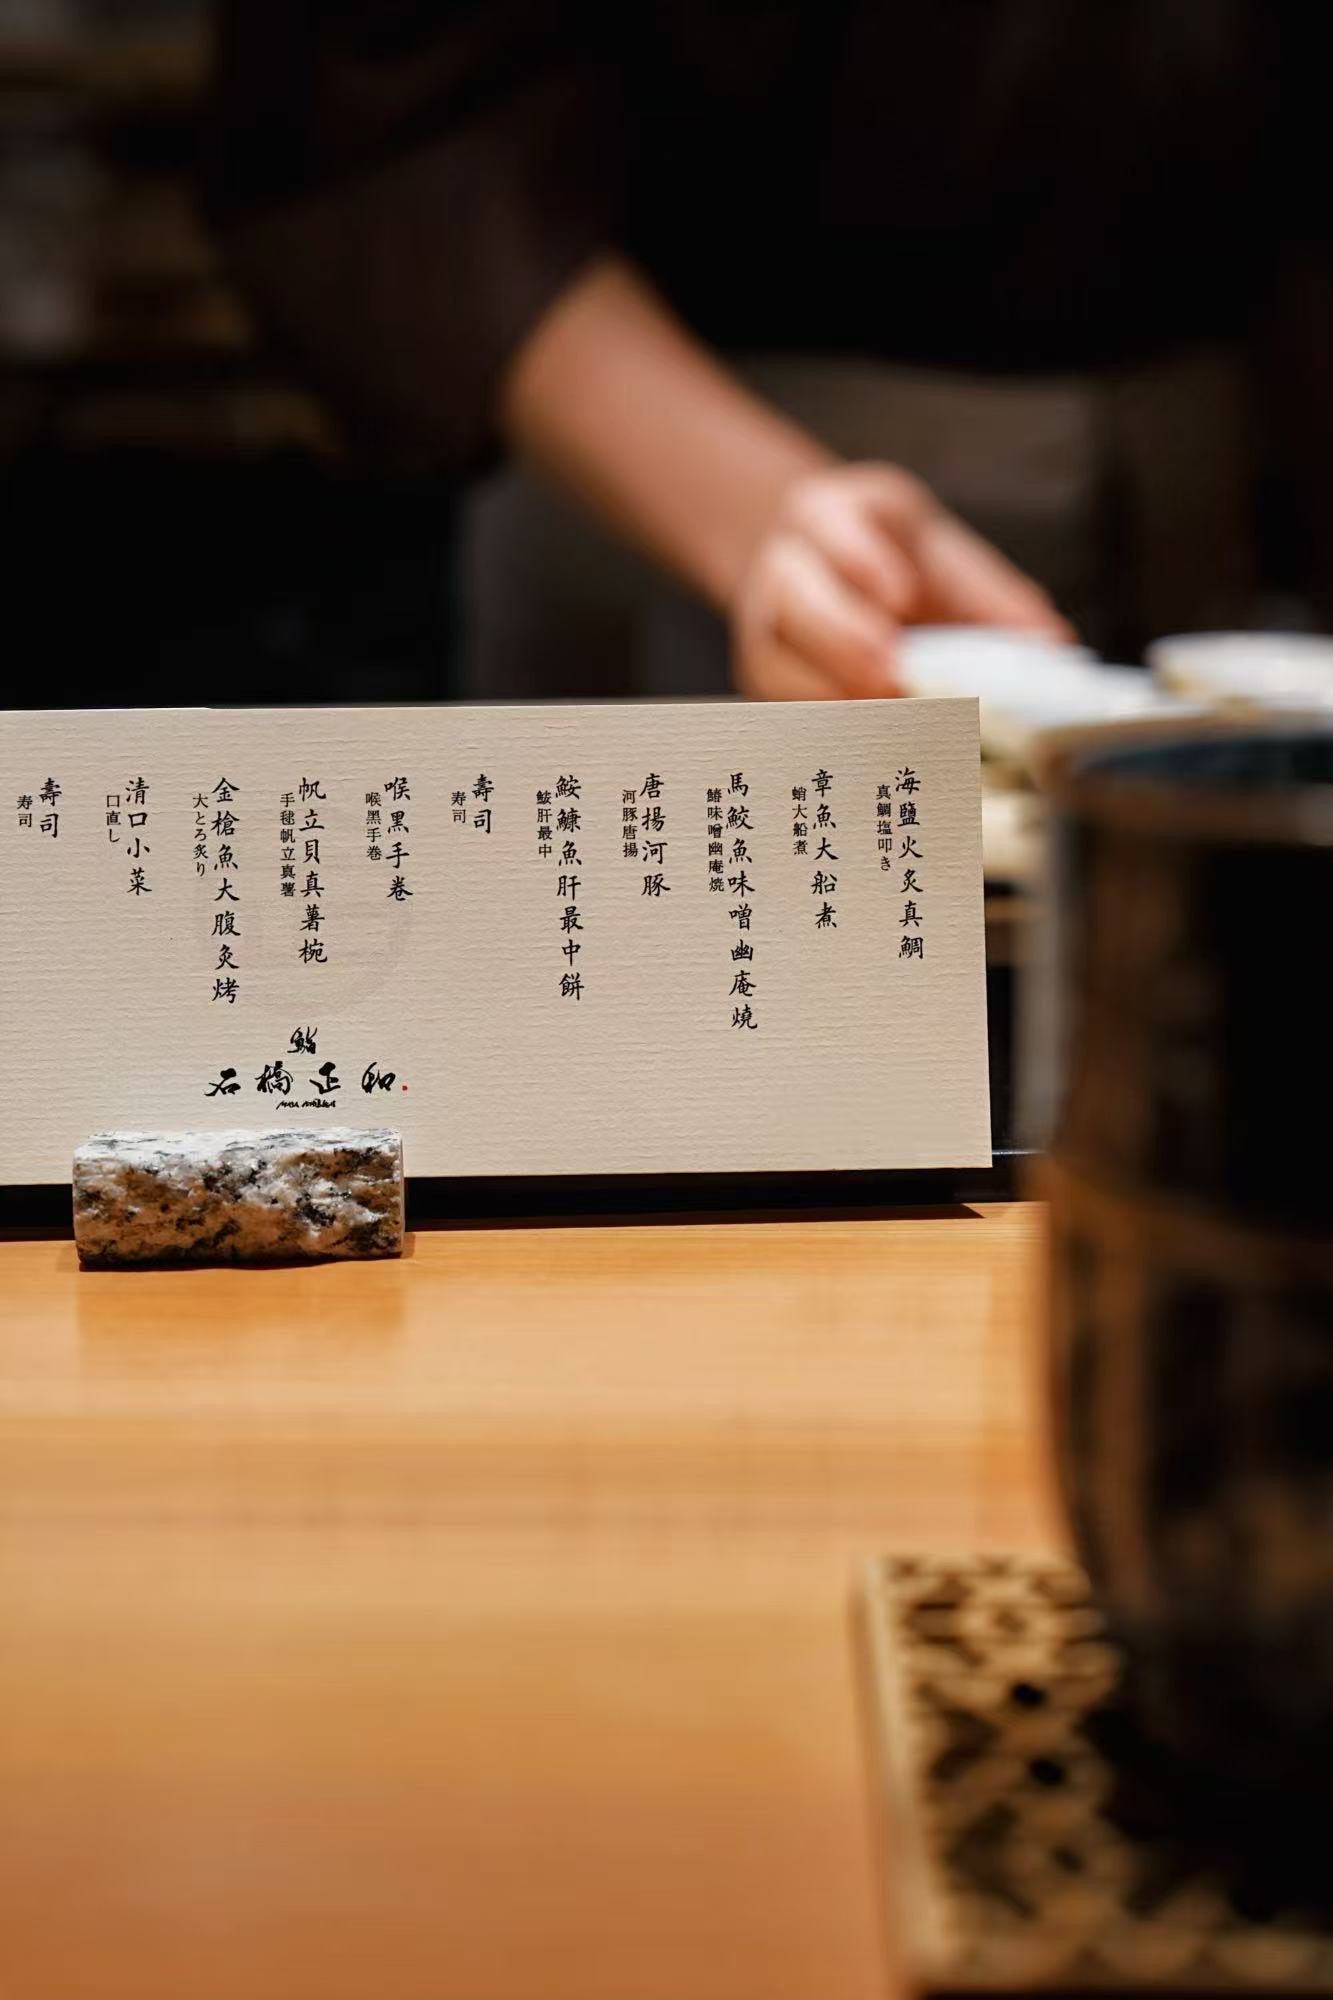 海鹽火炙真鯛
真鯛塩叩き
章魚大船煮
蛸大船煮
馬鮫魚味噌幽庵燒
鰆味噌幽庵焼
唐揚河豚
河豚唐揚
鮟鱇魚肝最中餅
鮟肝最中
壽司
寿司
喉黑手卷
喉黒手巻
帆立貝真薯椀
手毬帆立真薯
金槍魚大腹炙烤
大とろ炙り
清口小菜
口直し
壽司
寿司
鮨
石橋正和